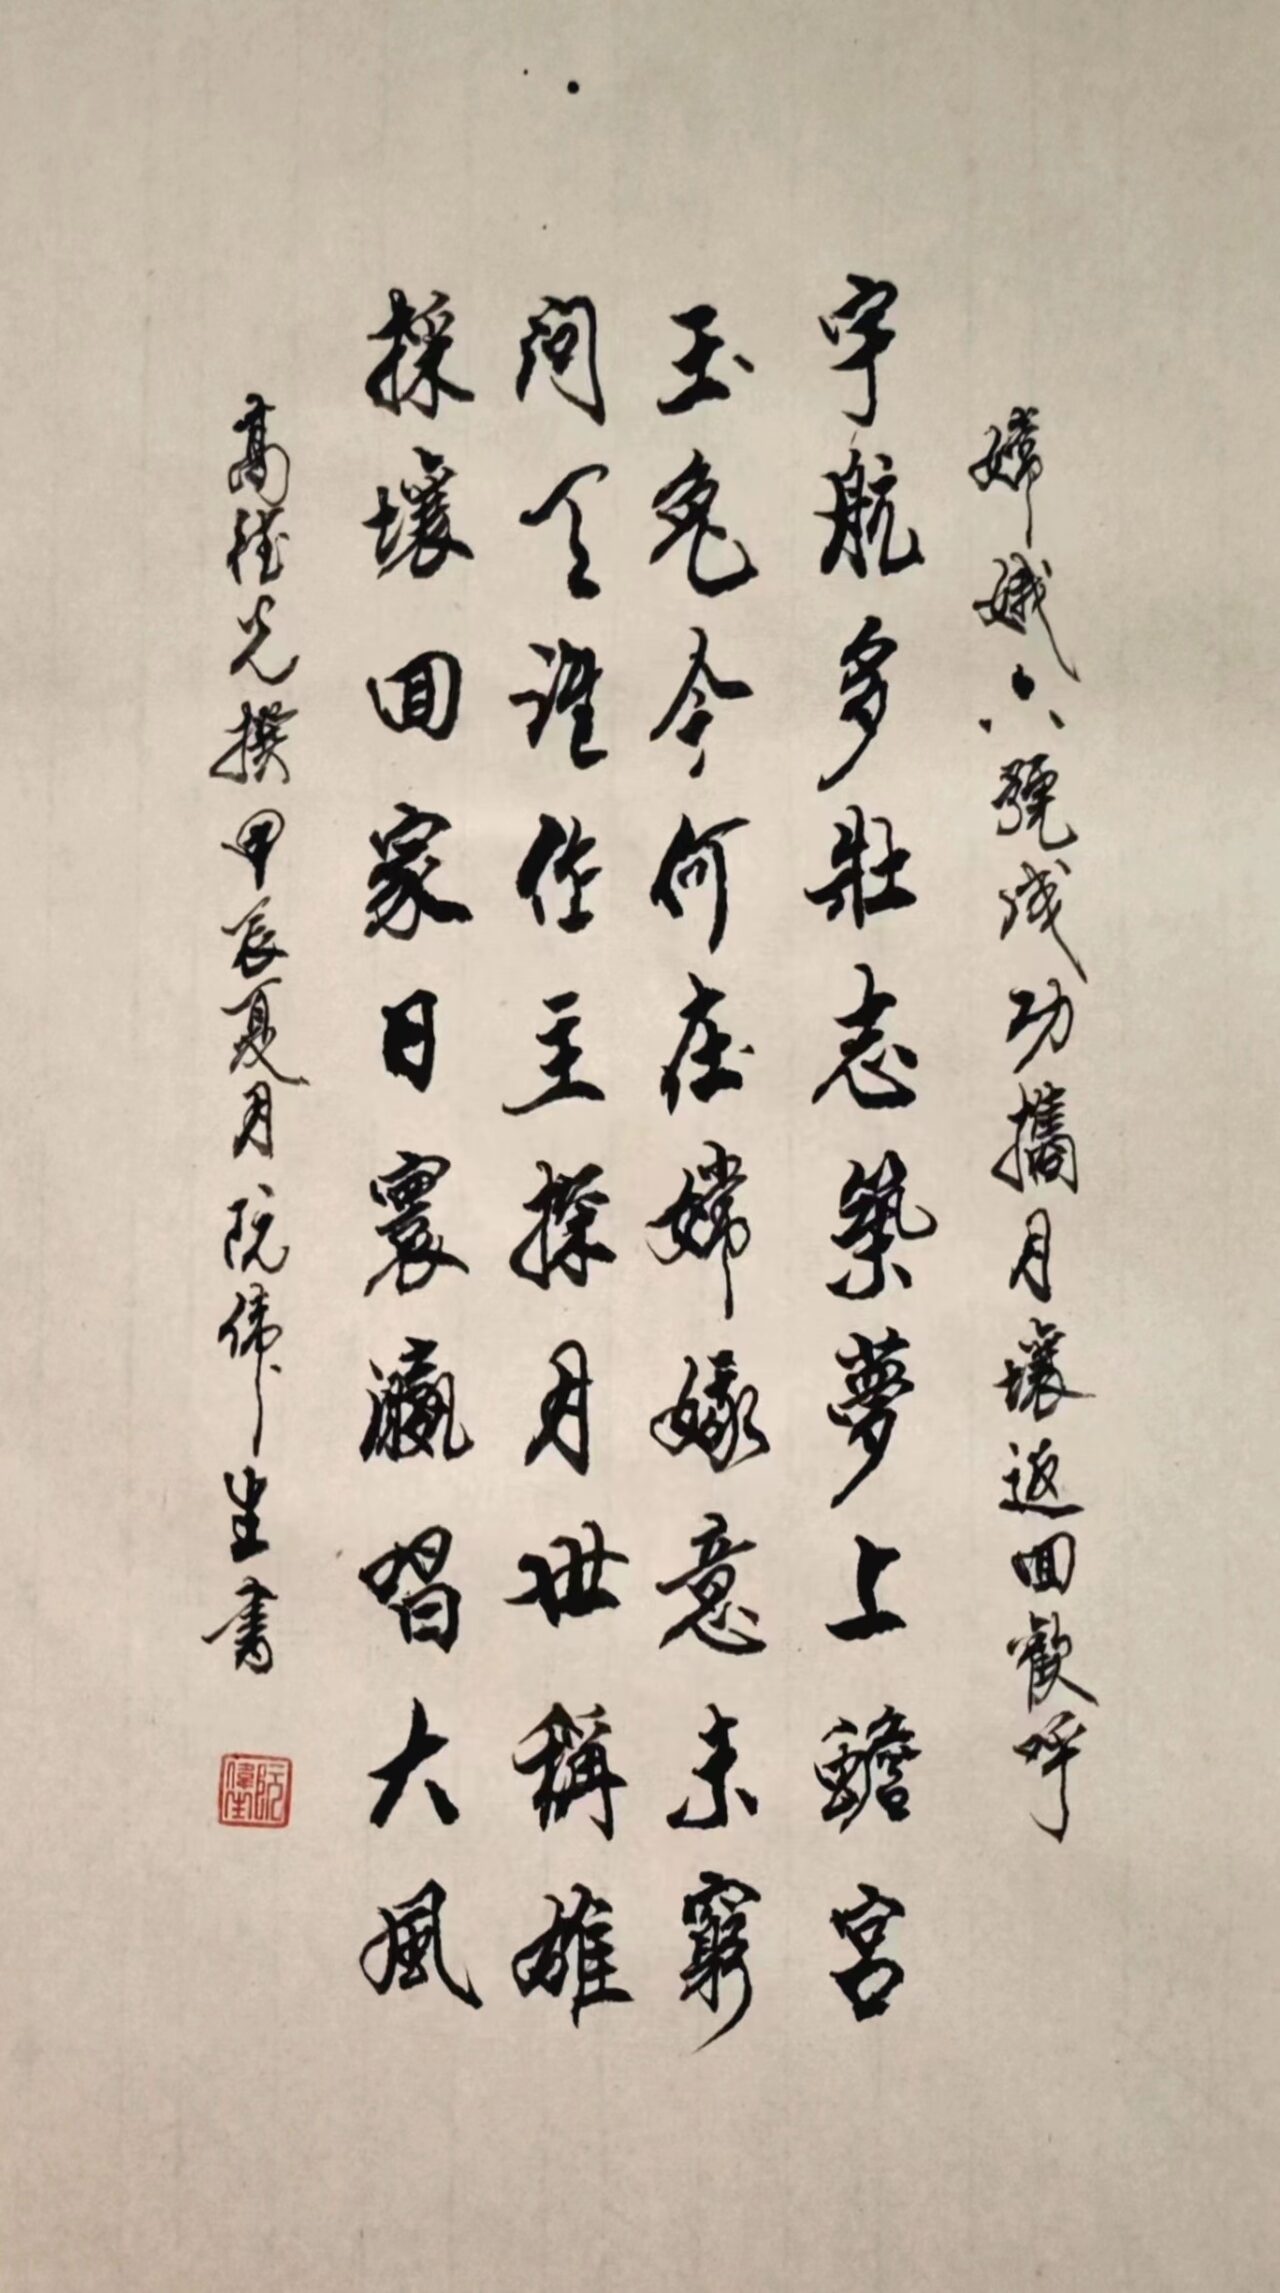 嫦娥六號成功攜月壤返囬歡呼
宇航多壯志築夢上蟾宮
玉兔今何在嫦娥意未窮
問天誰作主探月世稱雄
採壤囬家日寰瀛唱大風
高德光撰甲辰夏月阮偉生書
阮偉生